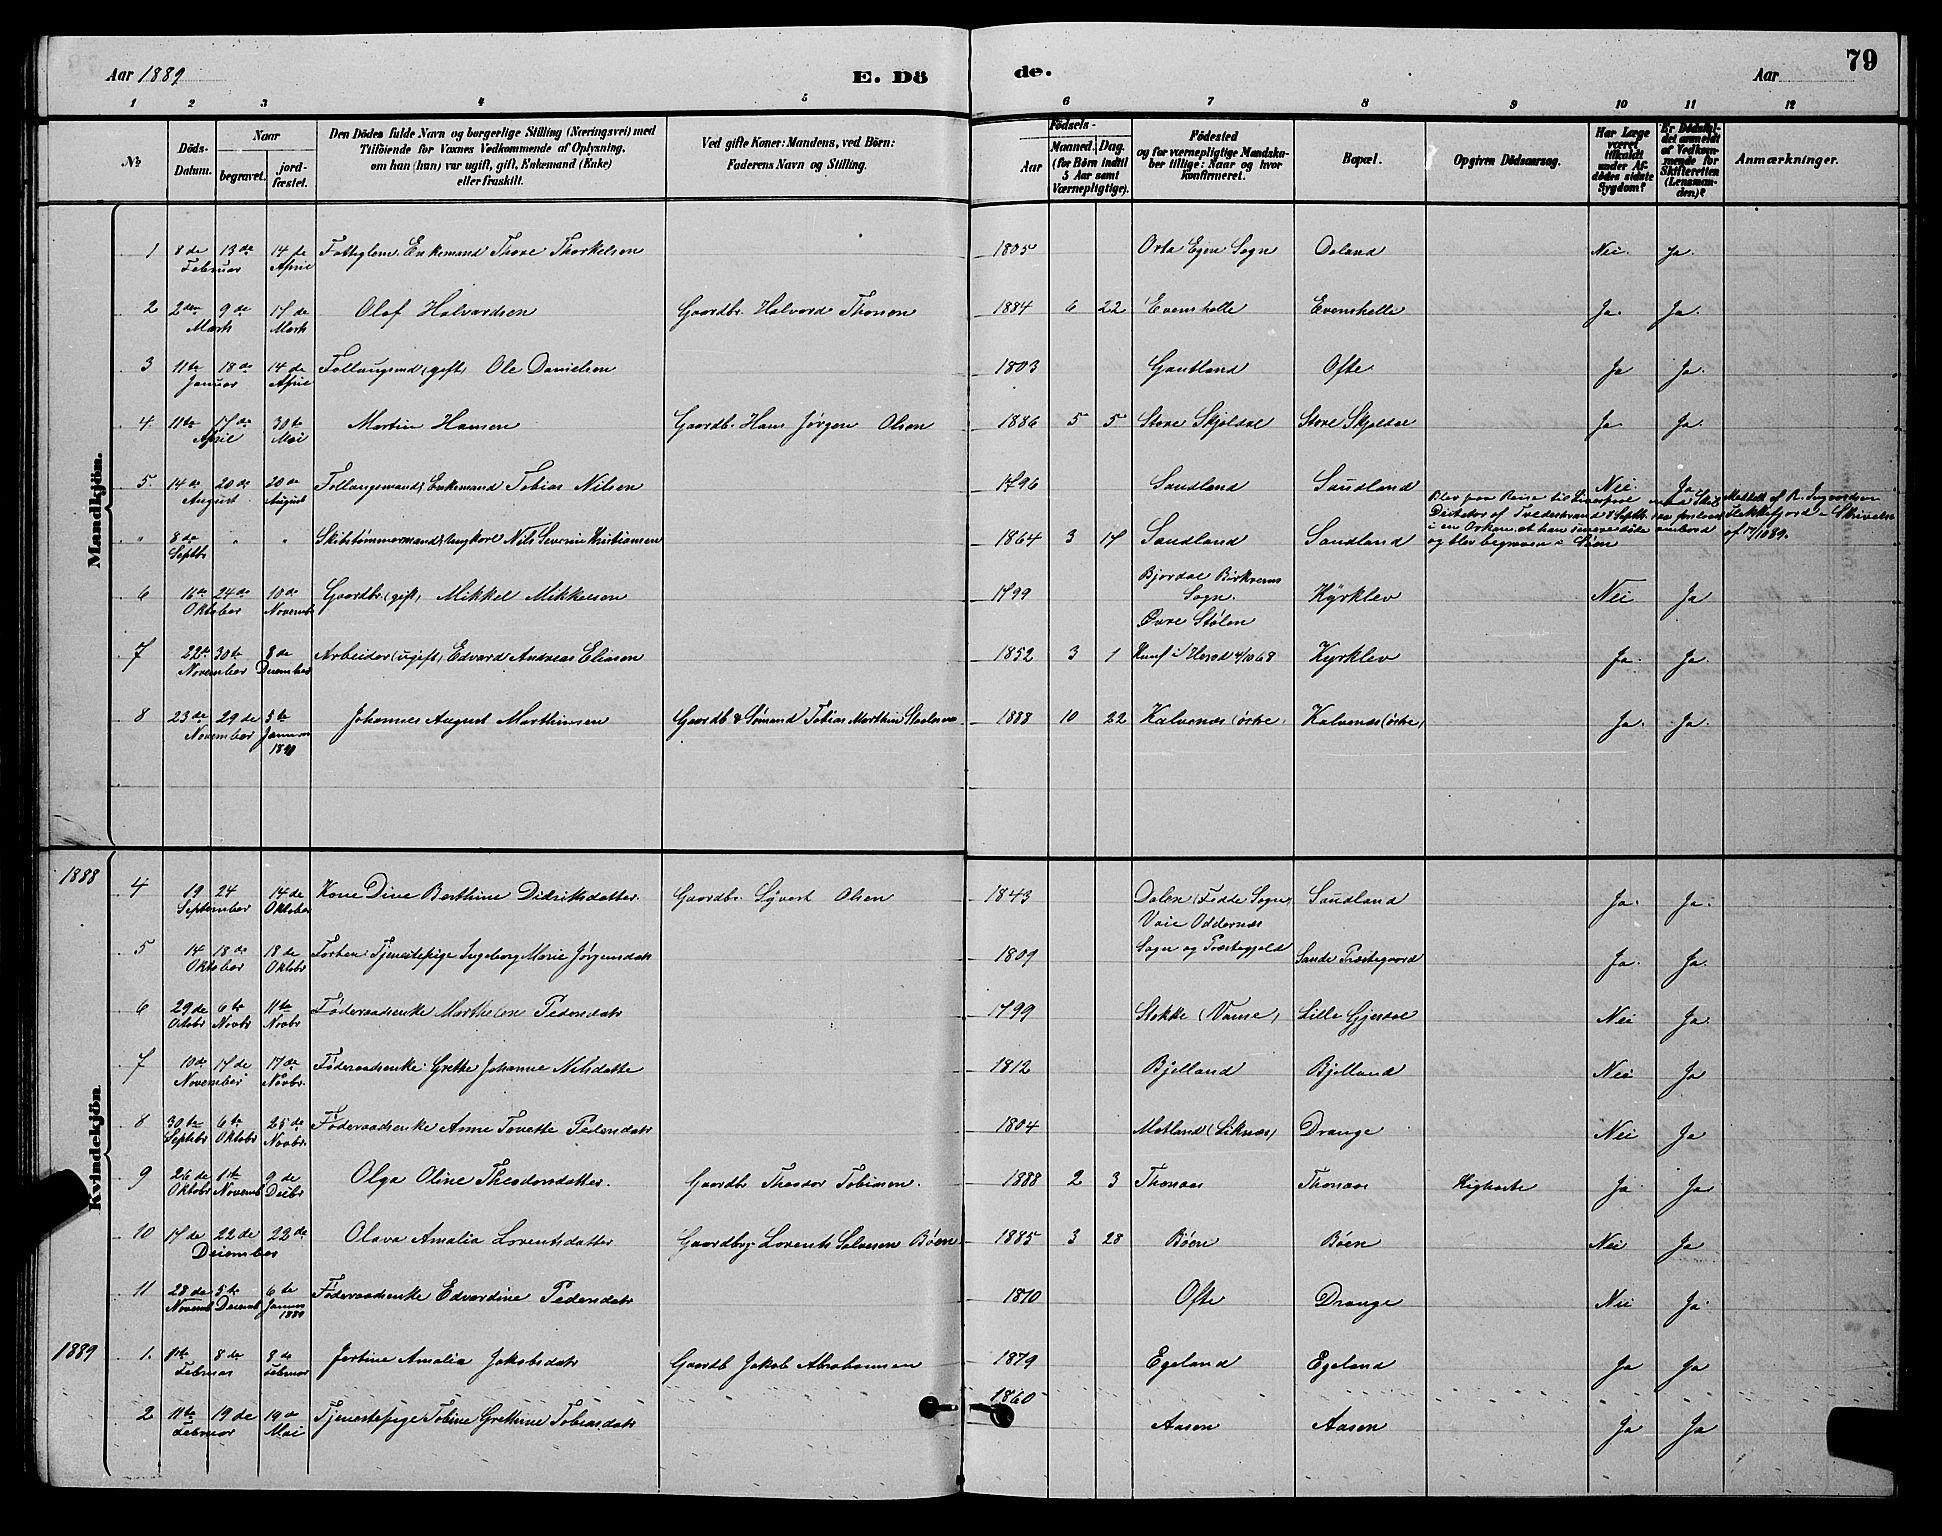 Aar 1889
E. Dö
de.
Aar
79
1 2 3 4 5 6 7 8 9 10 11 12
№
Döds-Datum.
Naar
begravet.
jordfæstet.
Den Dödes fulde Navn og borgerlige Stilling (Næringsvei) med
Tilföiende for Voxnes Vedkommende af Oplysning,
om han (hun) var ugift, gift, Enkemand (Enke)
eller fraskilt.
Ved gifte Koner: Mandens, ved Börn:
Faderens Navn og Stilling.
Födsels-
Aar
Maaned. Dag.
(for Börn indtil
5 Aar samt
Værnepligtige).
Födested
og for værnepligtige Mandskaber tillige: Naar og hvor
konfirmeret.
Bopæl.
Opgiven Dödsaarsag.
Har Læge
været
tilkaldt
under Afdödes sidste
Sygdom?
Er Dödsfaldet anmeldt
af Vedkommende for
Skifteretten
(Lensmanden)?
Anmærkninger.
Mandkjön.
1 8de Februar 13de 14de April Enkemand Thore Thorkelsen 1805 Egen Sogn Nei. Ja.
2 2den 9de Marts 17de Marts Olaf Halvardsen Gaardbr. Halvard Thorsen 1884 6 22 Evenskelle Evenskelle Ja. Ja.
3 11te 18de Januar 14de April (gift) Ole Danielsen 1803 Gautland Ofte Ja Ja.
4. 11te 17de April 30te Mai Martin Hansen Gaardbr. Hans Jørgen Olsen 1886 5 5 Store Skjoldal Store Skjoldal Ja Ja.
5. 14de 20de August 20de August Enkemand Tobias Nilsen 1796 Saudland Saudland Nei Ja
" 8de Septbr " " Skibstømmermand, ungkarl Nils Severin Kristiansen 1864 3 17 Saudland Saudland
Blev paa Reise til Liverpool
af Tvedestrand 8 Septbr
i en Orkan, at han
og blev begraven i Søen
ombord
Meddelt af R. Ingvardsen
Flekkefjord i Skrivelse
af 17/10 89.
6 11te 24de Oktober 10de Novemb Gaardbr. (gift) Mikkel Mikkelsen 1799 Bjordal Birkrems
Sogn. Kyrklev Nei Ja
7 22de 30te November 8de December Arbeider (ugift) Edvard Andreas Eliasen 1852 3 1 Øvre Stølen
Konf. i Herad 4/10 68 Kyrklev Ja. Ja.
8 23de 29de November 5te Januar 1890 Johannes August Marthinsen Gaardb. & Sømand Tobias Marthin 1888 10 22 Kalvenæs (østre) Kalvenæs (østre) Ja. Ja.
Kvindekjön
1888
4 19 24 September 14de Oktober Kone Dine Berthine Didriksdatter. Gaardbr. Syvert Olsen 1843 Dalen (Fedde Sogn) Saudland Ja. Ja.
5 14 18de Oktober 18de Oktobr Tjenestepige Ingeborg Marie Jørgensdatr 1809 Voie Oddernæs
Sogn og Præstegjeld Sande Præstegaard Ja. Ja.
6 29de Octobr 6te Novbr 11te Novbr Føderaadsenke Marthe Pedersdatr 1799 Stokke (Vanse) Lille Gjerdal Nei Ja.
7 10de 17de November 17de Novbr. Føderaadsenke Grethe Johanne Nilsdatte 1812 Bjelland Bjelland Nei Ja
8 30te Septbr 6te Oktobr 25de Novbr Føderaadsenke Anne Tovette Pedersdatr 1804 Motland (Liknæs) Drange Nei Ja
9 26de Oktobr 1ste Novemb 9de Decbr Olga Oline Theodorsdatter. Gaardbr. Theodor Tobiasen. 1888 2 3 Thonaas Thonaas Kighoste Ja Ja
10 17de 22de December 22de Olava Amalia Lorentsdatter Gaardbrg. Lorents Salvesen Bøen 1885 3 28 Bøen Bøen Nei Ja
11 28de Novemb 5te Decemb 6te Januar 1889 Føderaadsenke Edvardine Pedersdatr 1810 Ofte Drange Nei Ja.
1889
1. 1ste 8de Februar 8de Februar Jertine Amalia Jakobsdatr Gaardb. Jakob Abrahamsen 1879 Egeland Egeland Ja Ja
2 11te 19de Februar 19de Mai Tjenestepige Tobine Grethine Tobiasdatr 1860 Aasen Aasen Ja Ja